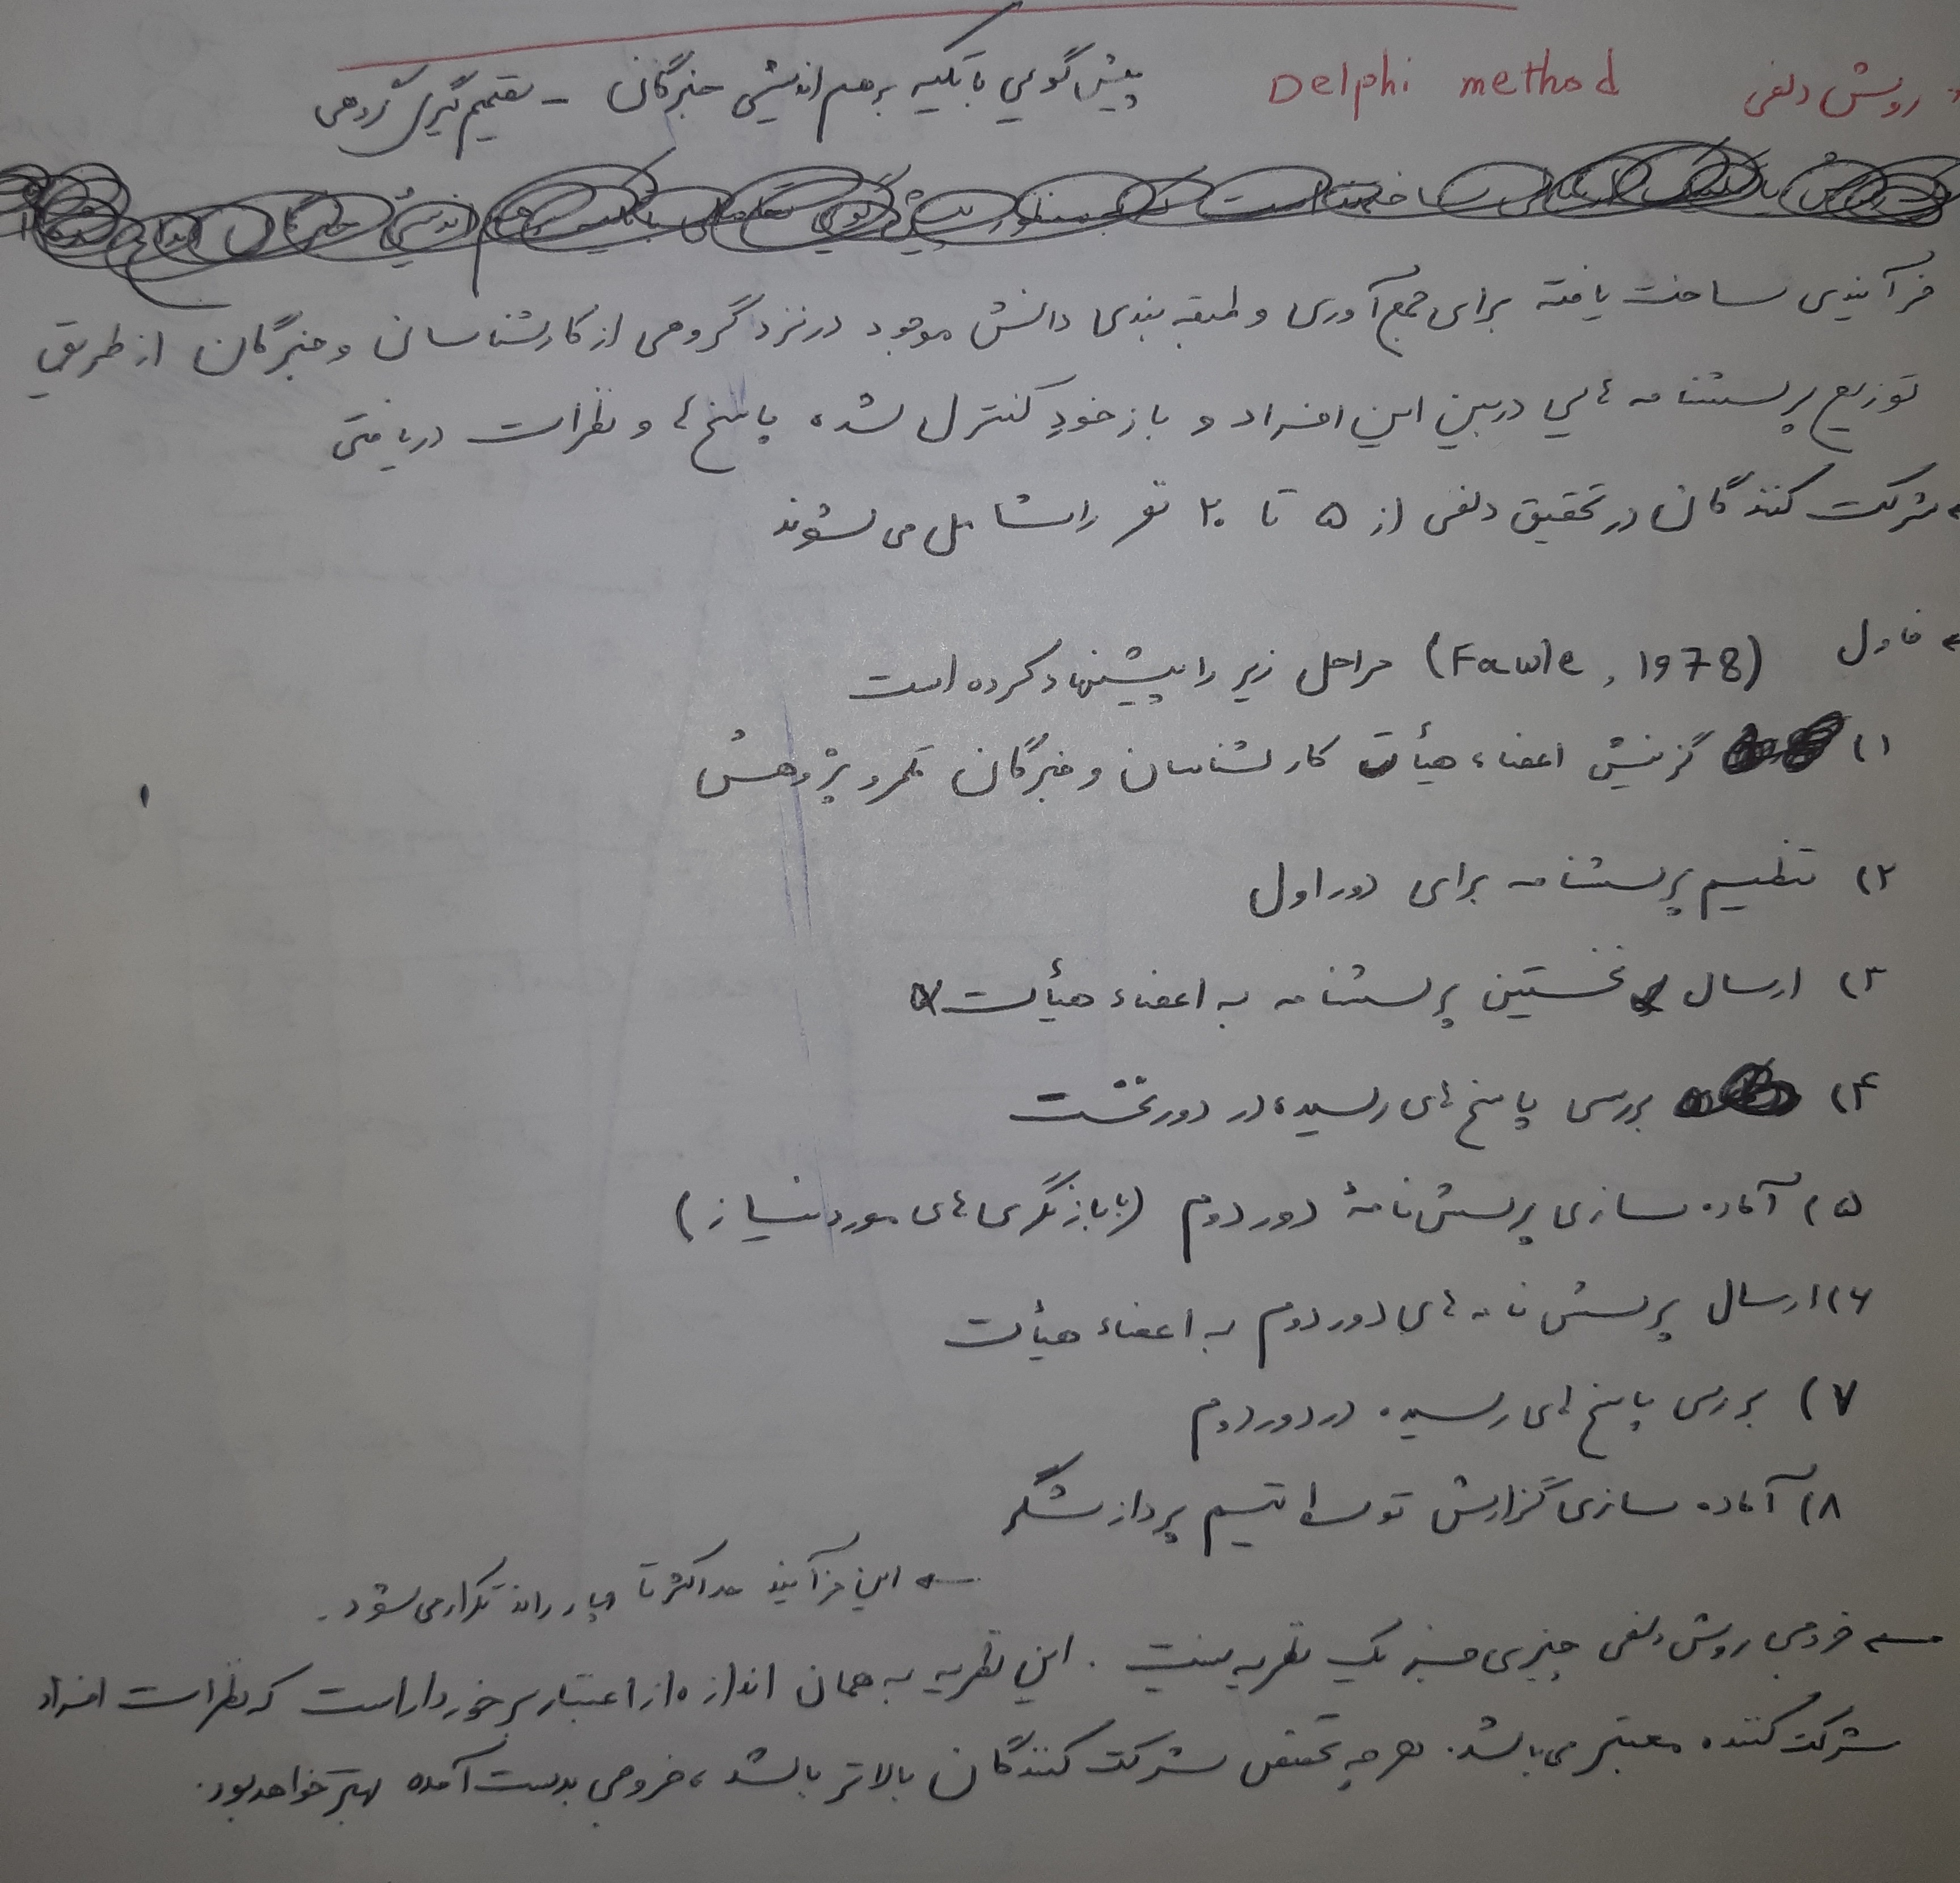 روش دلفی Delphi method پیش گویی با تکیه بر هم اندیشی خبرگان - تصمیم گیری گروهی
فرآیندی ساخت یافته برای جمع آوری و طبقه بندی دانش موجود در نزد گروهی از کارشناسان و خبرگان از طریق
توزیع پرسشنامه هایی در بین این افراد و بازخورد کنترل شده پاسخ ها و نظرات دریافتی
شرکت کنندگان در تحقیق دلفی از ۵ تا ۲۰ نفر را شامل می شوند
فاول (Fawle, 1978) مراحل زیر را پیشنهاد کرده است
۱) گزینش اعضاء هیأت کارشناسان و خبرگان قلمرو پژوهش
۲) تنظیم پرسشنامه برای دور اول
۳) ارسال نخستین پرسشنامه به اعضاء هیأت
۴) بررسی پاسخ های رسیده در دور نخست
۵) آماده سازی پرسش نامۀ دور دوم (با بازنگری های مورد نیاز)
۶) ارسال پرسش نامه های دور دوم به اعضاء هیأت
۷) بررسی پاسخ های رسیده در دور دوم
۸) آماده سازی گزارش توسط تیم پردازشگر
← این فرآیند حداکثر تا چهار راند تکرار می شود.
← خروجی روش دلفی چیزی جز یک نظریه نیست. این نظریه به همان اندازه از اعتبار برخوردار است که نظرات افراد
شرکت کننده معتبر می باشد. هر چه تخصص شرکت کنندگان بالاتر باشد، خروجی بدست آمده بهتر خواهد بود.